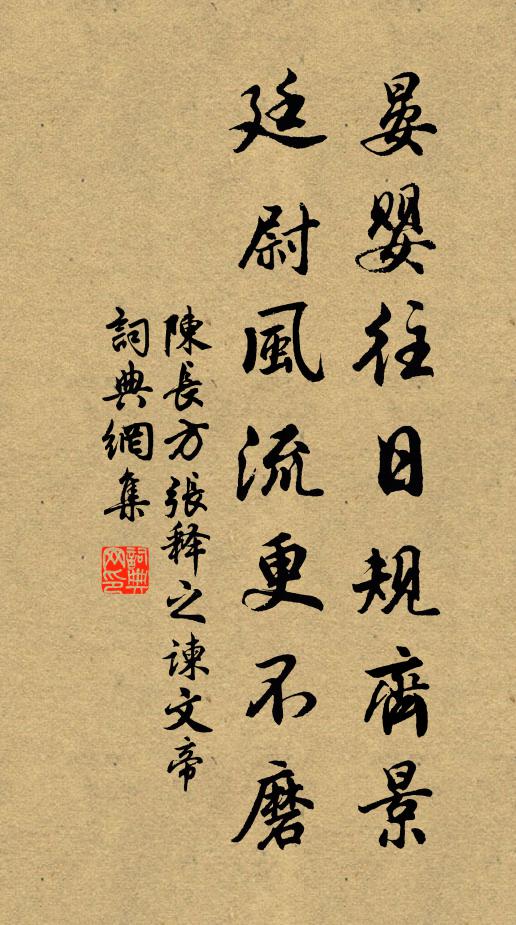 晏嬰往日規齊景
廷尉風流更不磨
陳長方張释之谏文帝
詞典網集
詞典网印